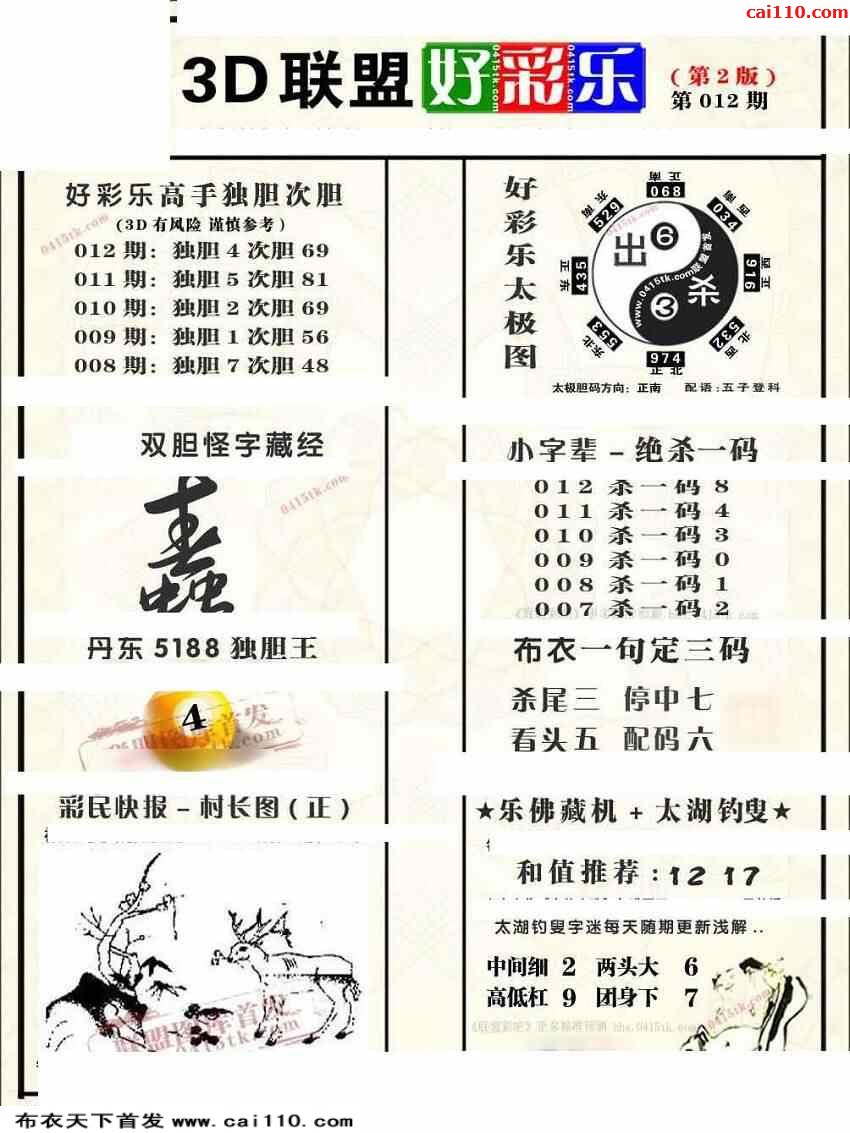 cai110.com
3D 联盟 好彩乐
(第2版)
第 012 期
好彩乐高手独胆次胆
(3D 有风险 谨慎参考)
012 期: 独胆 4 次胆 69
011 期: 独胆 5 次胆 81
010 期: 独胆 2 次胆 69
009 期: 独胆 1 次胆 56
008 期: 独胆 7 次胆 48
0415tk.com
好彩乐太极图
正南 068
西南 034
正西 916
西北 532
正北 974
东北 553
正东 435
东南 529
出 6
杀 3
www.0415tk.com联盟首发
太极胆码方向: 正南 配语: 五子登科
双胆怪字藏经
0415tk.com
小字辈 – 绝杀一码
012 杀一码 8
011 杀一码 4
010 杀一码 3
009 杀一码 0
008 杀一码 1
007 杀一码 2
丹东 5188 独胆王
4
布衣一句定三码
杀尾三 停中七
看头五 配码六
彩民快报 – 村长图 (正)
联盟图库首发
0415tk.com
★乐佛藏机 + 太湖钓叟★
和值推荐 : 12 17
太湖钓叟字迷每天随期更新浅解 ..
中间细 2 两头大 6
高低杠 9 团身下 7
布衣天下首发 www.cai110.com